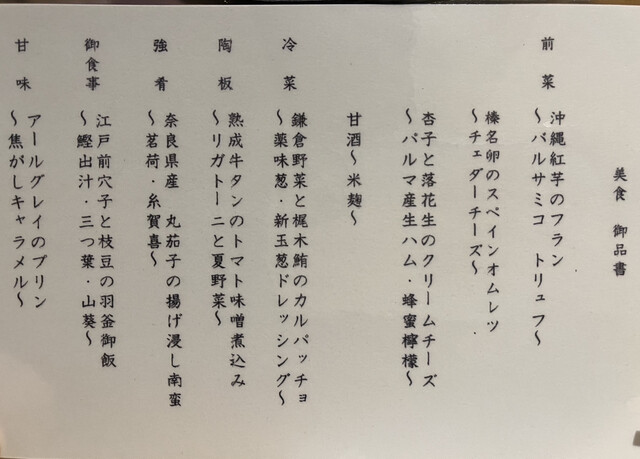 美食 御品書
前菜
沖縄紅芋のフラン
〜バルサミコ トリュフ〜
榛名卵のスペインオムレツ
〜チェダーチーズ〜
杏子と落花生のクリームチーズ
〜パルマ産生ハム・蜂蜜檸檬〜
甘酒〜米麹〜
冷菜
鎌倉野菜と梶木鮪のカルパッチョ
〜薬味葱・新玉葱ドレッシング〜
陶板
熟成牛タンのトマト味噌煮込み
〜リガトーニと夏野菜〜
強肴
奈良県産 丸茄子の揚げ浸し南蛮
〜茗荷・糸賀喜〜
御食事
江戸前穴子と枝豆の羽釜御飯
〜鰹出汁・三つ葉・山葵〜
甘味
アールグレイのプリン
〜焦がしキャラメル〜